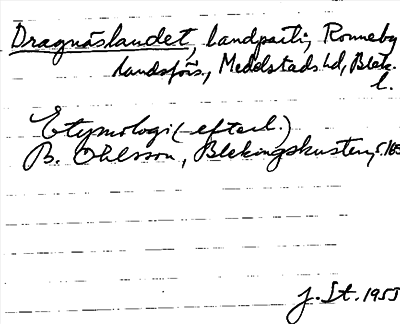 Dragnäslandet, landparti, Ronneby
landsförs., Medelstads hd, Blek.
l.
Etymologi (-efterl.)
B. Ohlsson, Blekingskusten, s. 165
J. St. 1955